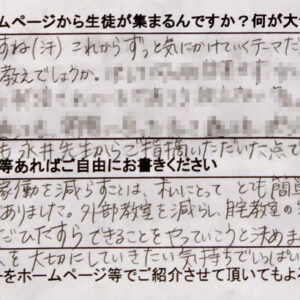 ムページから生徒が集まるんですか？何が大
すね(汗) これからずっと気にかけていくテーマだ
教えでしょうか。
も永井先生からご指摘いただいた点で
等あればご自由にお書きください
稼働を減らすことは、私にとって とても簡
ありました。外部教室を減らし、自宅教室の
だひたすらできることをやっていこうと決めま
を大切にしていきたい気持ちでいっぱい
ーをホームページ等でご紹介させて頂いてもよ